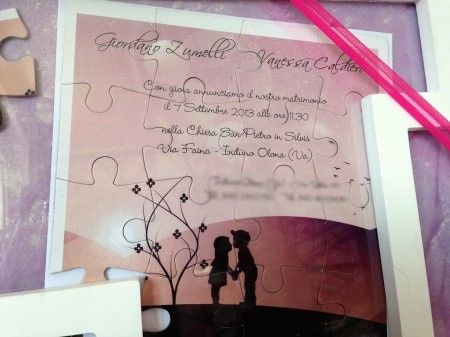 Giordano Zumelli Vanessa Caldieri
Con gioia annunciamo il nostro matrimonio
il 7 Settembre 2013 alle ore 11.30
nella Chiesa San Pietro in Silvis
Via Faina - Induno Olona (Va)